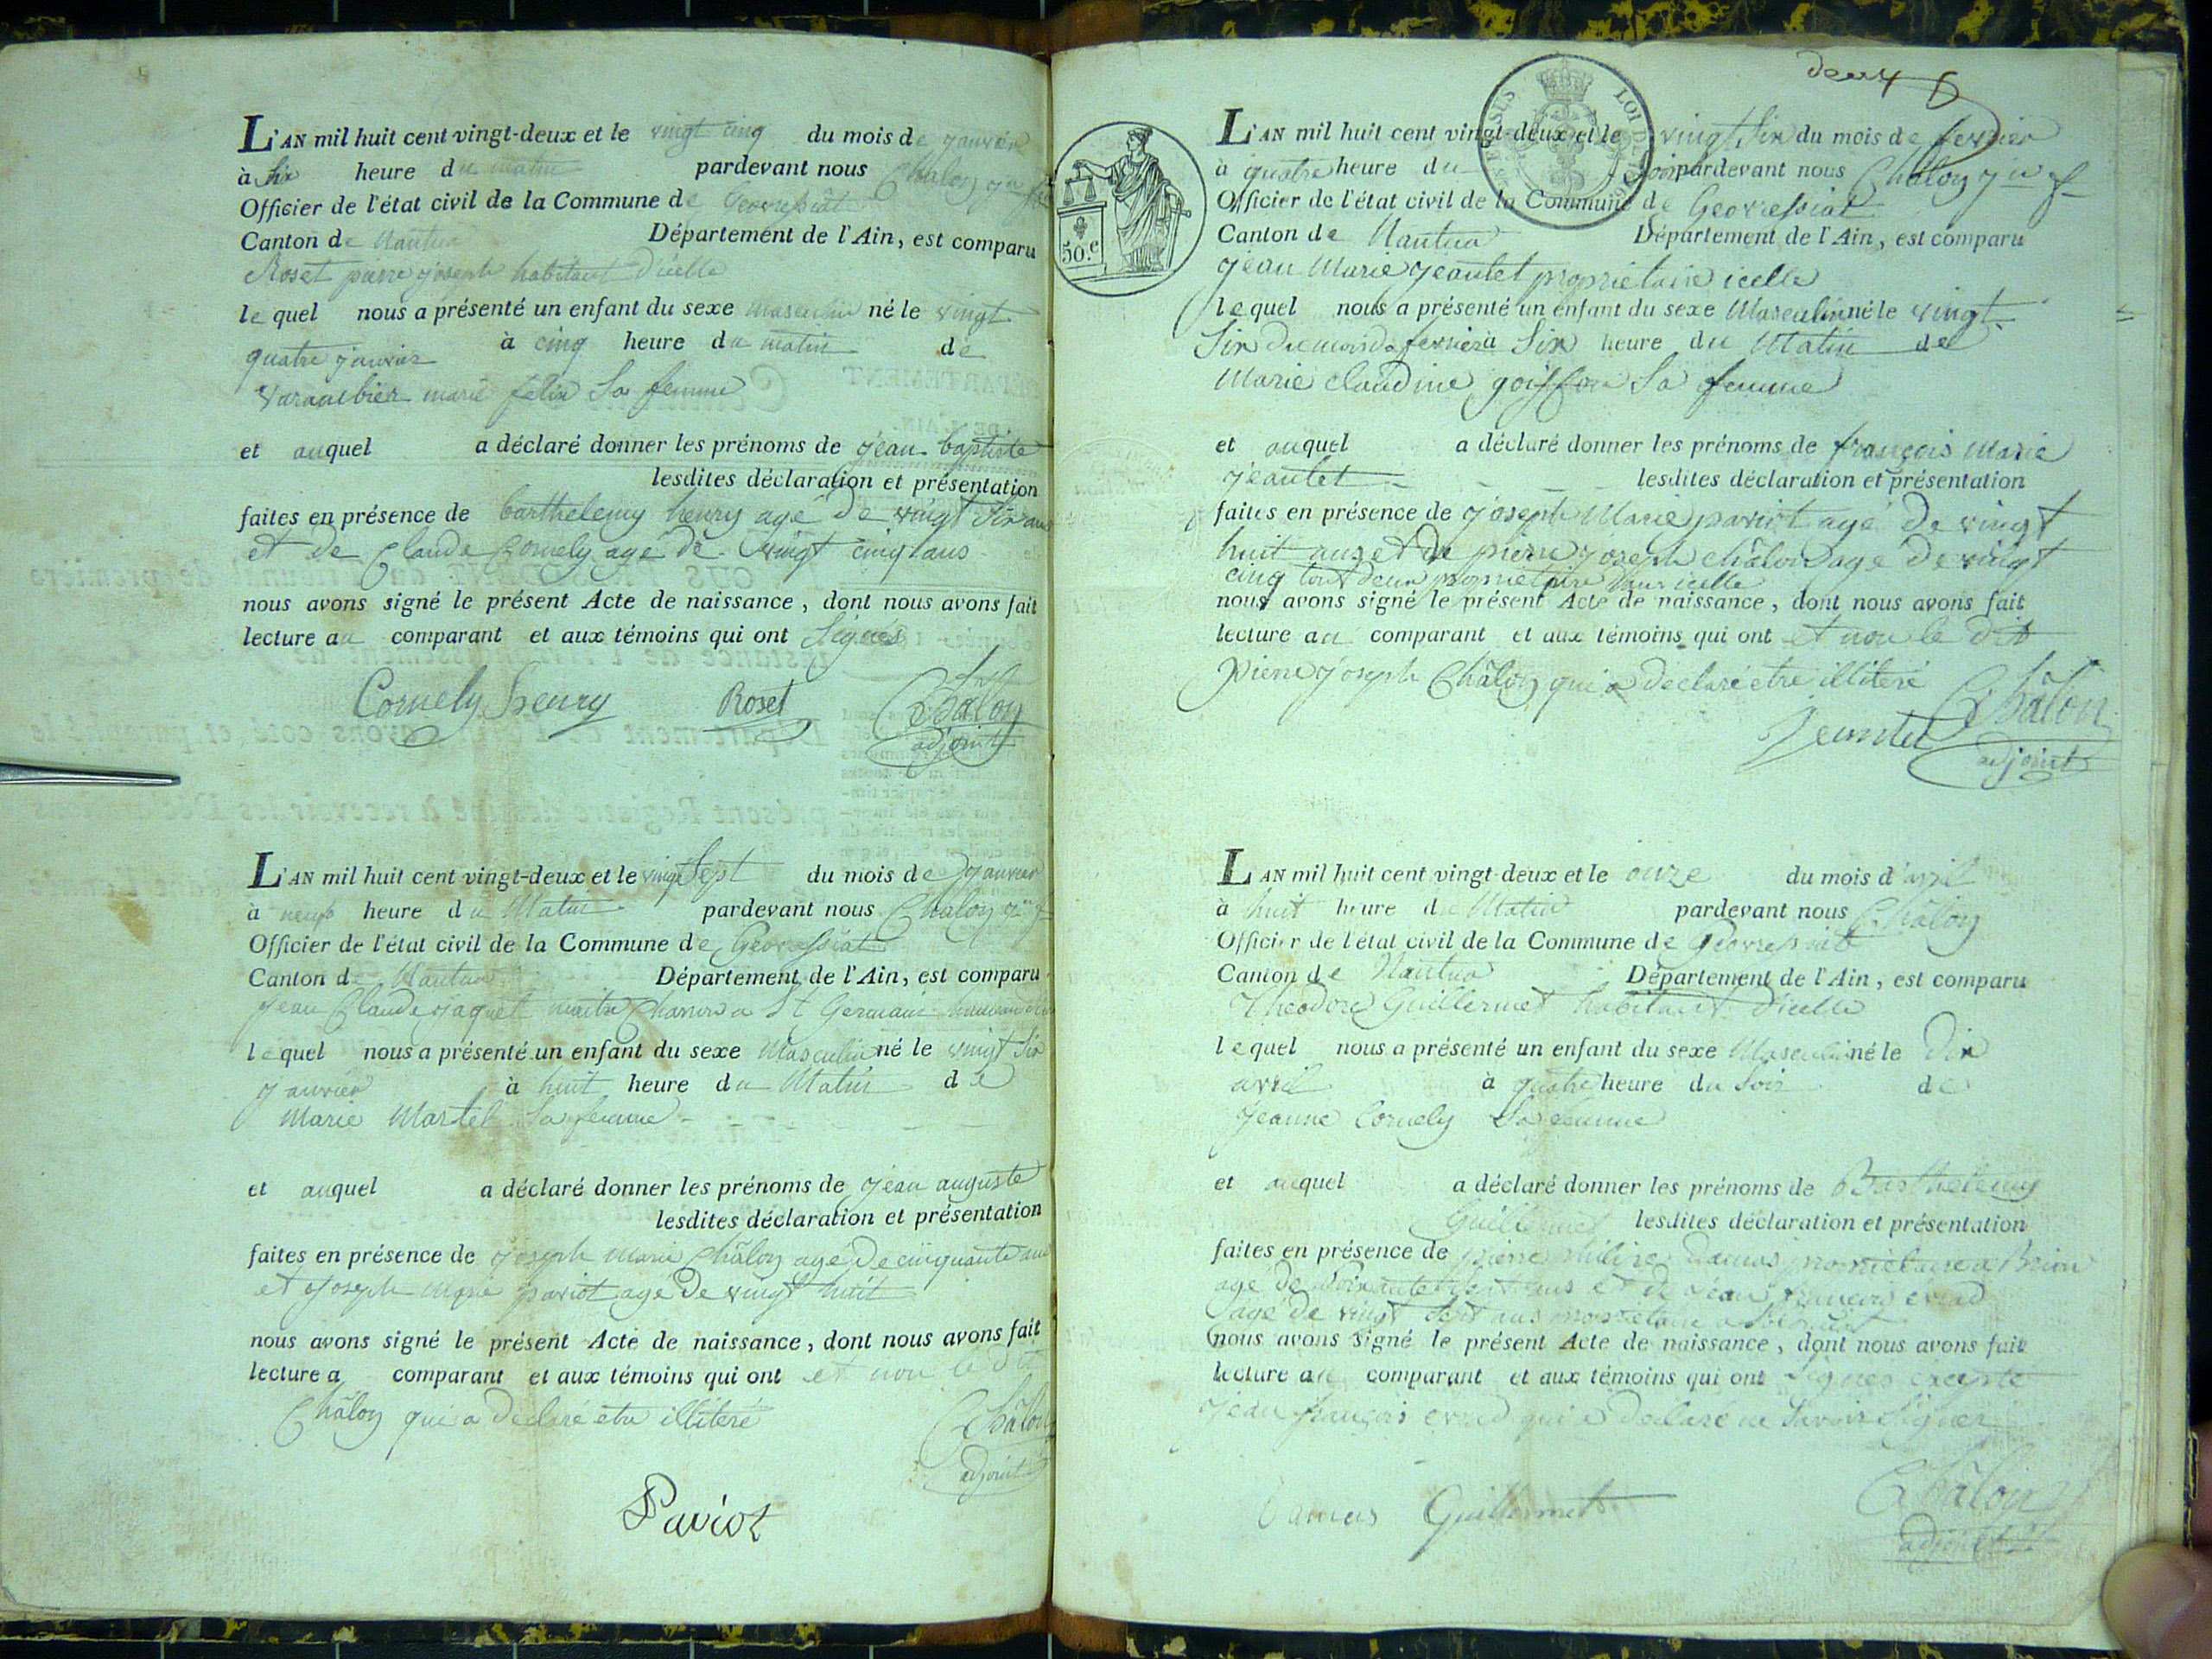 L'AN mil huit cent vingt-deux et le vingt cinq du mois de janvier
à six heure du matin pardevant nous Châlon
Officier de l'état civil de la Commune de Geovressiat
Canton de Nantua Département de l'Ain, est comparu
Roset pierre joseph habitant d'icelle
le quel nous a présenté un enfant du sexe masculin né le vingt
quatre janvier à cinq heure du matin de
varambier marie felix Sa femme
et auquel a déclaré donner les prénoms de jean baptiste
lesdites déclaration et présentation
faites en présence de barthelemy henry agé de vingt Six ans
et de Claude Cornely agé de vingt cinq ans
nous avons signé le présent Acte de naissance, dont nous avons fait
lecture au comparant et aux témoins qui ont Signés
Cornely henry Roset Châlon
adjoint
L'AN mil huit cent vingt-deux et le vingt Sept du mois de janvier
à neuf heure du Matin pardevant nous Châlon
Officier de l'état civil de la Commune de Geovressiat
Canton de Nantua Département de l'Ain, est comparu
jean Claude jaquet maitre a St Germain
le quel nous a présenté un enfant du sexe Masculin né le vingt Six
janvier à huit heure du Matin de
Marie Martel Sa femme
et auquel a déclaré donner les prénoms de jean auguste
lesdites déclaration et présentation
faites en présence de joseph marie Châlon agé de cinquante ans
et joseph marie paviot agé de vingt huit
nous avons signé le présent Acte de naissance, dont nous avons fait
lecture a comparant et aux témoins qui ont et non le dit
Châlon qui a déclaré etre illiteré
Châlon
adjoint
Paviot
deux
50.c
L'AN mil huit cent vingt-deux et le vingt Six du mois de fevrier
à quatre heure du Soir pardevant nous Châlon
Officier de l'état civil de la Commune de Geovressiat
Canton de Nantua Département de l'Ain, est comparu
jean Marie jeantet proprietaire icelle
le quel nous a présenté un enfant du sexe Masculin né le vingt
Six du mois de fevrier à Six heure du Matin de
Marie claudine goiffon Sa femme
et auquel a déclaré donner les prénoms de françois Marie
jeantet lesdites déclaration et présentation
faites en présence de joseph Marie paviot agé de vingt
huit ans et de pierre joseph châlon agé de vingt
cinq tout deux proprietaire dans icelle
nous avons signé le présent Acte de naissance, dont nous avons fait
lecture au comparant et aux témoins qui ont et non le dit
Pierre joseph Châlon qui a déclaré etre illiteré
Jeantet Châlon
adjoint
L'AN mil huit cent vingt-deux et le onze du mois d'avril
à huit heure du Matin pardevant nous Châlon
Officier de l'état civil de la Commune de Geovressiat
Canton de Nantua Département de l'Ain, est comparu
Theodore Guillermet habitant d'icelle
le quel nous a présenté un enfant du sexe Masculin né le Dix
avril à quatre heure du Soir de
Jeanne Cornely Sa femme
et auquel a déclaré donner les prénoms de Barthelemy
Guillermet lesdites déclaration et présentation
faites en présence de pierre Damas proprietaire a Brion
agé de Soixante ans et de jean françois
agé de vingt Sept ans proprietaire a
nous avons signé le présent Acte de naissance, dont nous avons fait
lecture au comparant et aux témoins qui ont Signés excepté
jean françois qui a déclaré ne Savoir Signer
Damas Guillermet Châlon
adjoint